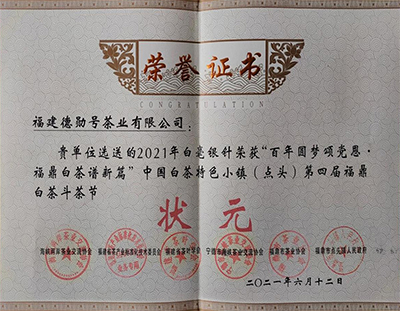 荣誉证书
CONGRATULATION
福建德勋号茶业有限公司：
贵单位选送的2021年白毫银针荣获“百年圆梦颂党恩·
福鼎白茶谱新篇”中国白茶特色小镇（点头）第四届福鼎
白茶斗茶节
状元
二〇二一年六月十二日